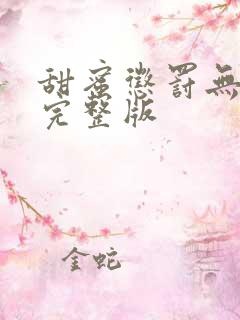 甜蜜懲罰無
完整版
金蛇